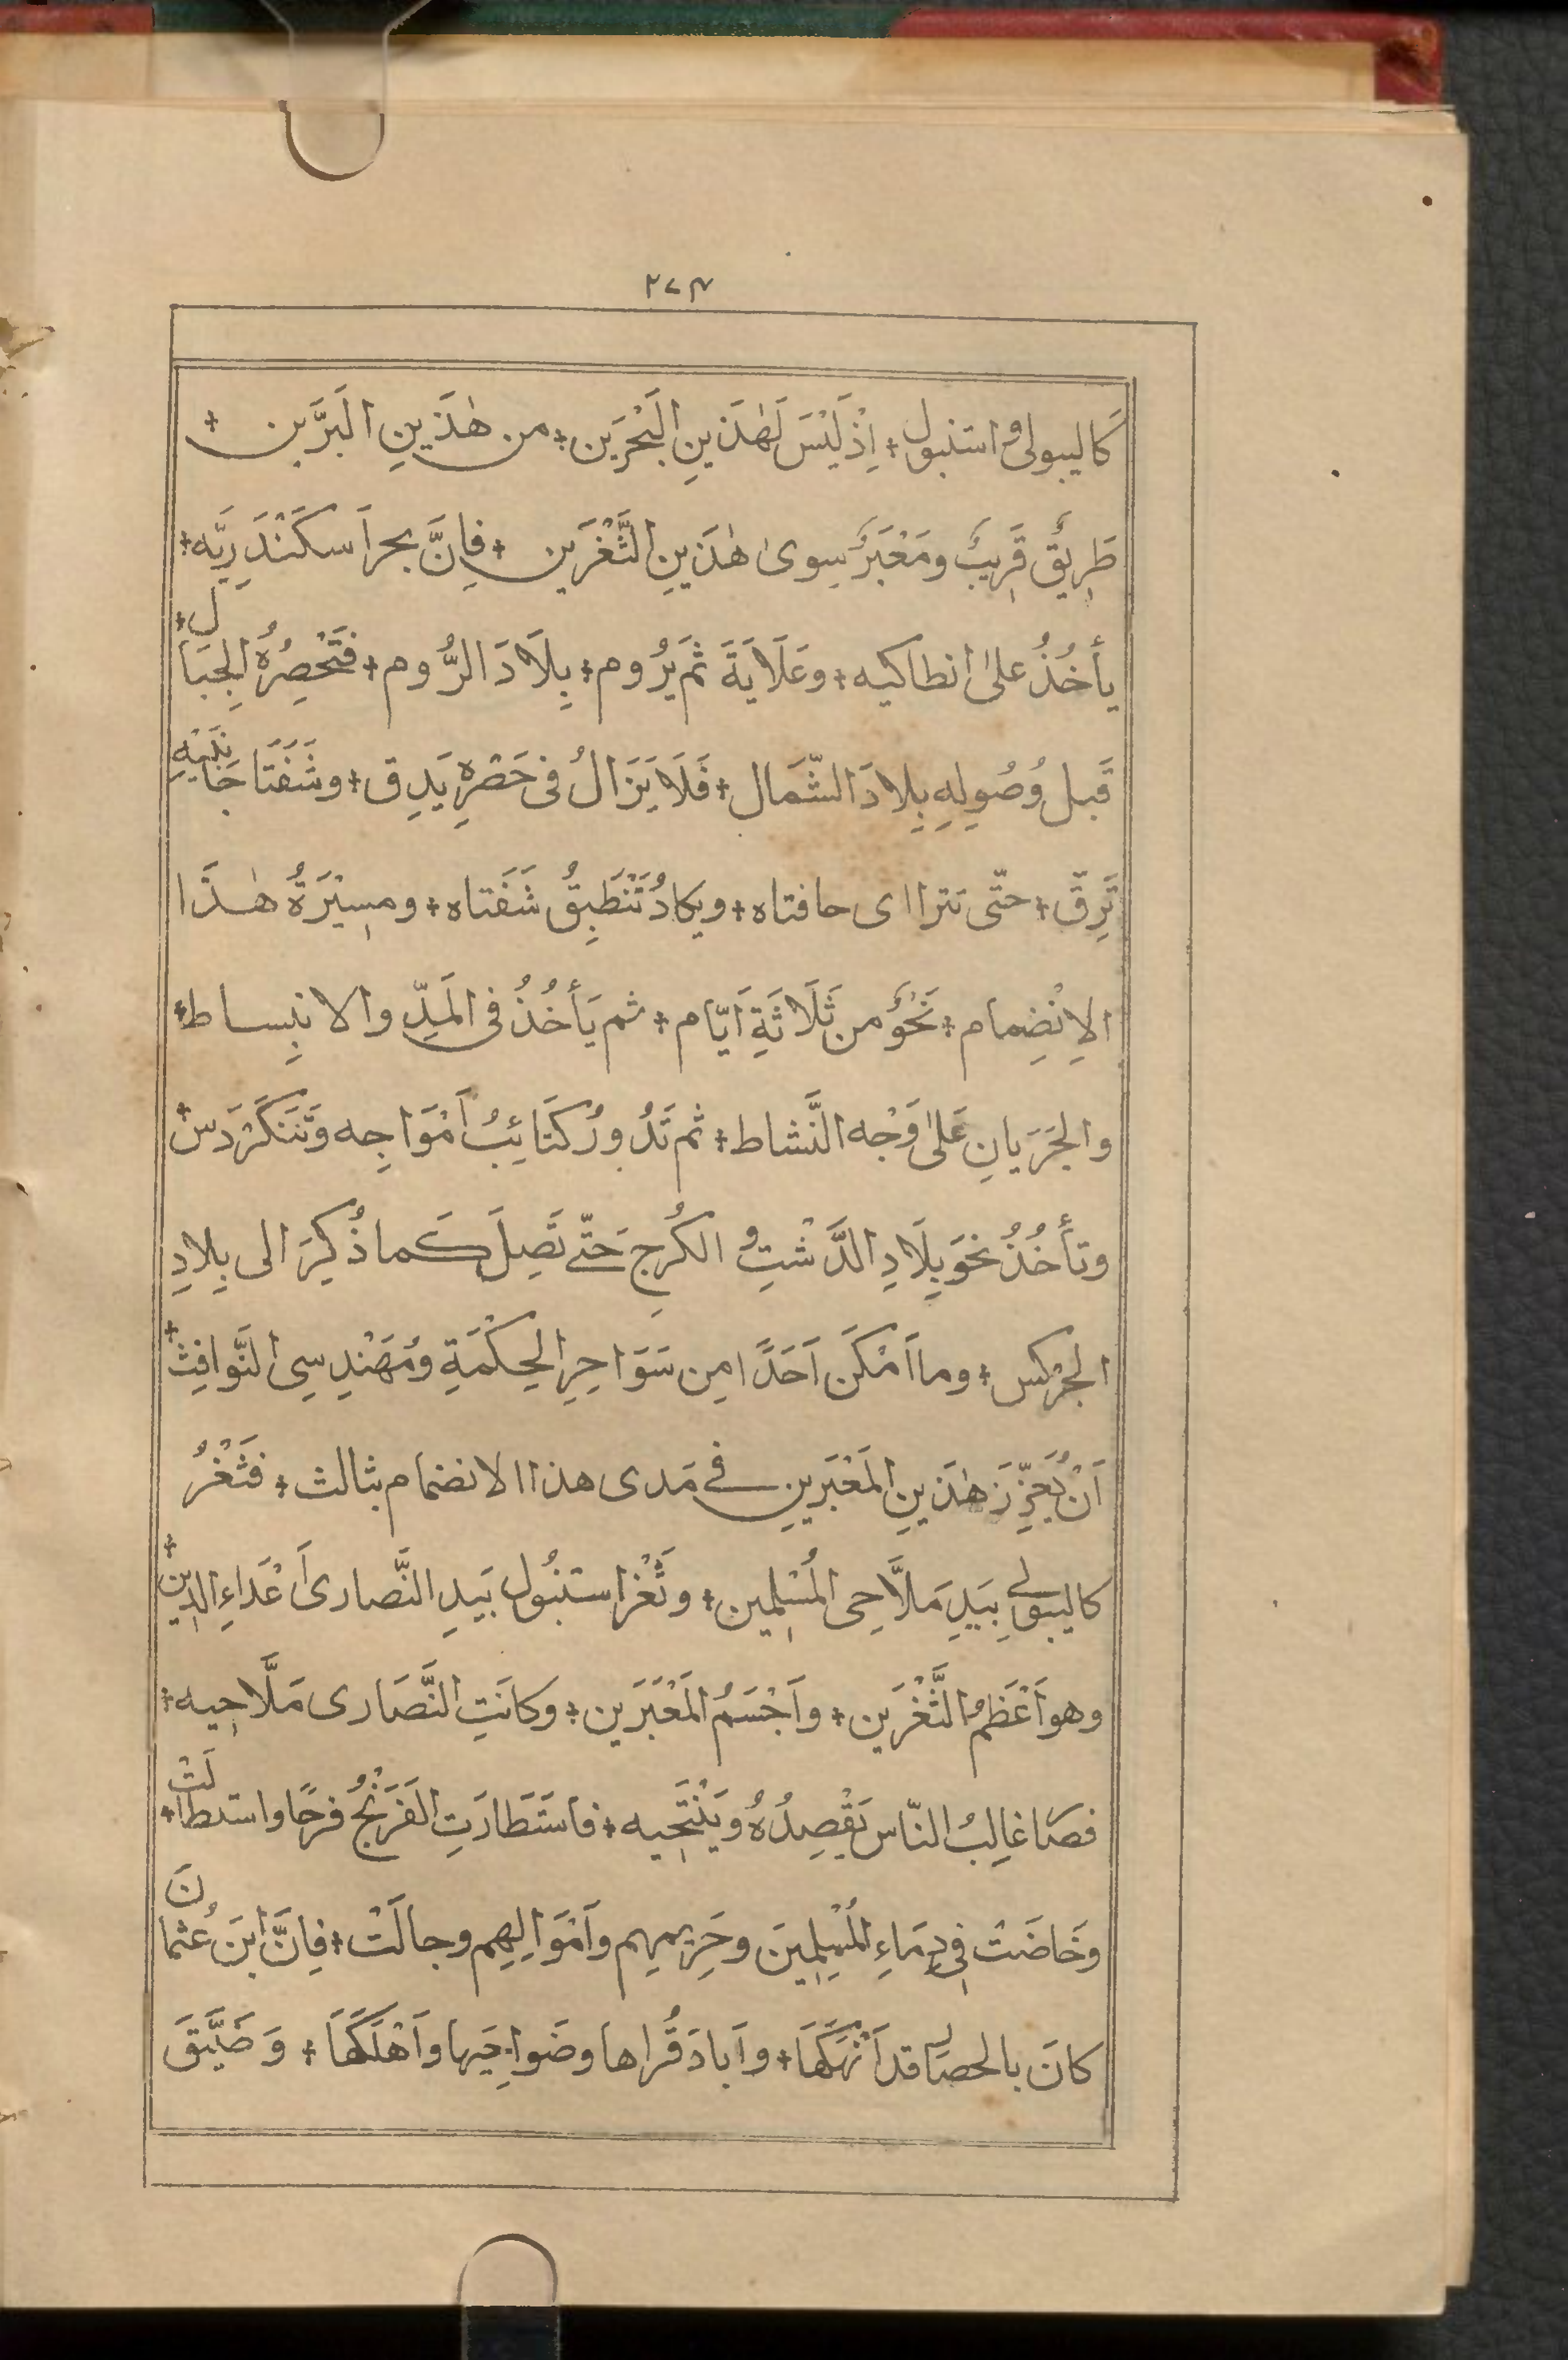 ٢٧٤
كاليبولى و استنبول + اِذْ لَيْسَ لَهٰذَينِ الْبَحْرَين + من هٰذَينِ البَرَّين +
طَرِيقٌ قَرِيبٌ ومَعْبَرٌ سِوىٰ هٰذَينِ الثَّغْرَين + فاِنَّ بحراَ سكَنْدَرِيَّه +
يأخُذُ علىٰ انطاكيه + وعَلَايَةَ ثم يَرُوم + بِلَادَ الرُّوم + فتَحْصِرُهُ الجِبَال +
قَبل وُصُولِهِ بِلادَ الشَّمَال + فَلَا يَزَالُ فى حَصْرِهِ يَدِق + وشَفَتَا جَانِبَيْهِ
تَرِقّ + حتّى تترااى حافتاه + ويكادُ تَنْطَبِقُ شَفَتاه + ومسِيْرَةُ هٰذَا
الاِنْضِمام + نَحْوٌ من ثَلَاثَةِ اَيّام + ثم يَأخُذُ فى المَدِّ والانبِساط +
والجَرَيانِ عَلىٰ وَجْه النَّشاط + ثم تَدُورُ كَتَائِبُ اَمْوَاجِه وتَتَكَرْدَسُ +
وتأخُذُ نحوَ بِلَادِ الدَّشْتِ و الكُرجِ حَتّے تَصِلَ كَما ذُكِرَ الى بِلادِ
الجرْكس + وما اَمْكَنَ اَحَدًا مِن سَوَاحِرِ الحِكْمَةِ ومُهَنْدِسِى النَّوافِث +
اَنْ يُعَزِّزَ هٰذَينِ المَعْبَرَينِ فے مَدى هذا الانضمام بثالث + فثَغْرُ
كاليبولے بِيَدِ مَلاَّحِى المُسْلِمين + وثَغْرُ استنبُول بَيَدِ النَّصارىٰ اَعْدَاءِ الدِين +
وهو اَعْظَمُ الثَّغْرَين + واَجْسَمُ المَعْبَرَين + وكانَتِ النَّصَارى مَلَّاحِيه +
فصَارَ غالِبُ النّاس يَقْصِدُهُ ويَنْتَحِيه + فاستَطارَتِ الفَرَنْجُ فرحًا واستطالَتْ +
وخَاضَتْ فِى دِمَاءِ المُسْلِمِينَ وحَرِيمِهِم واَمْوَالِهِم وجالَتْ + فاِنَّ ابنَ عُثمانَ
كانَ بالحصَارِ قد اَنْهَكَهَا + واَبادَ قُراها وضَواحِيَها واَهْلَكَهَا + وَضَيَّقَ